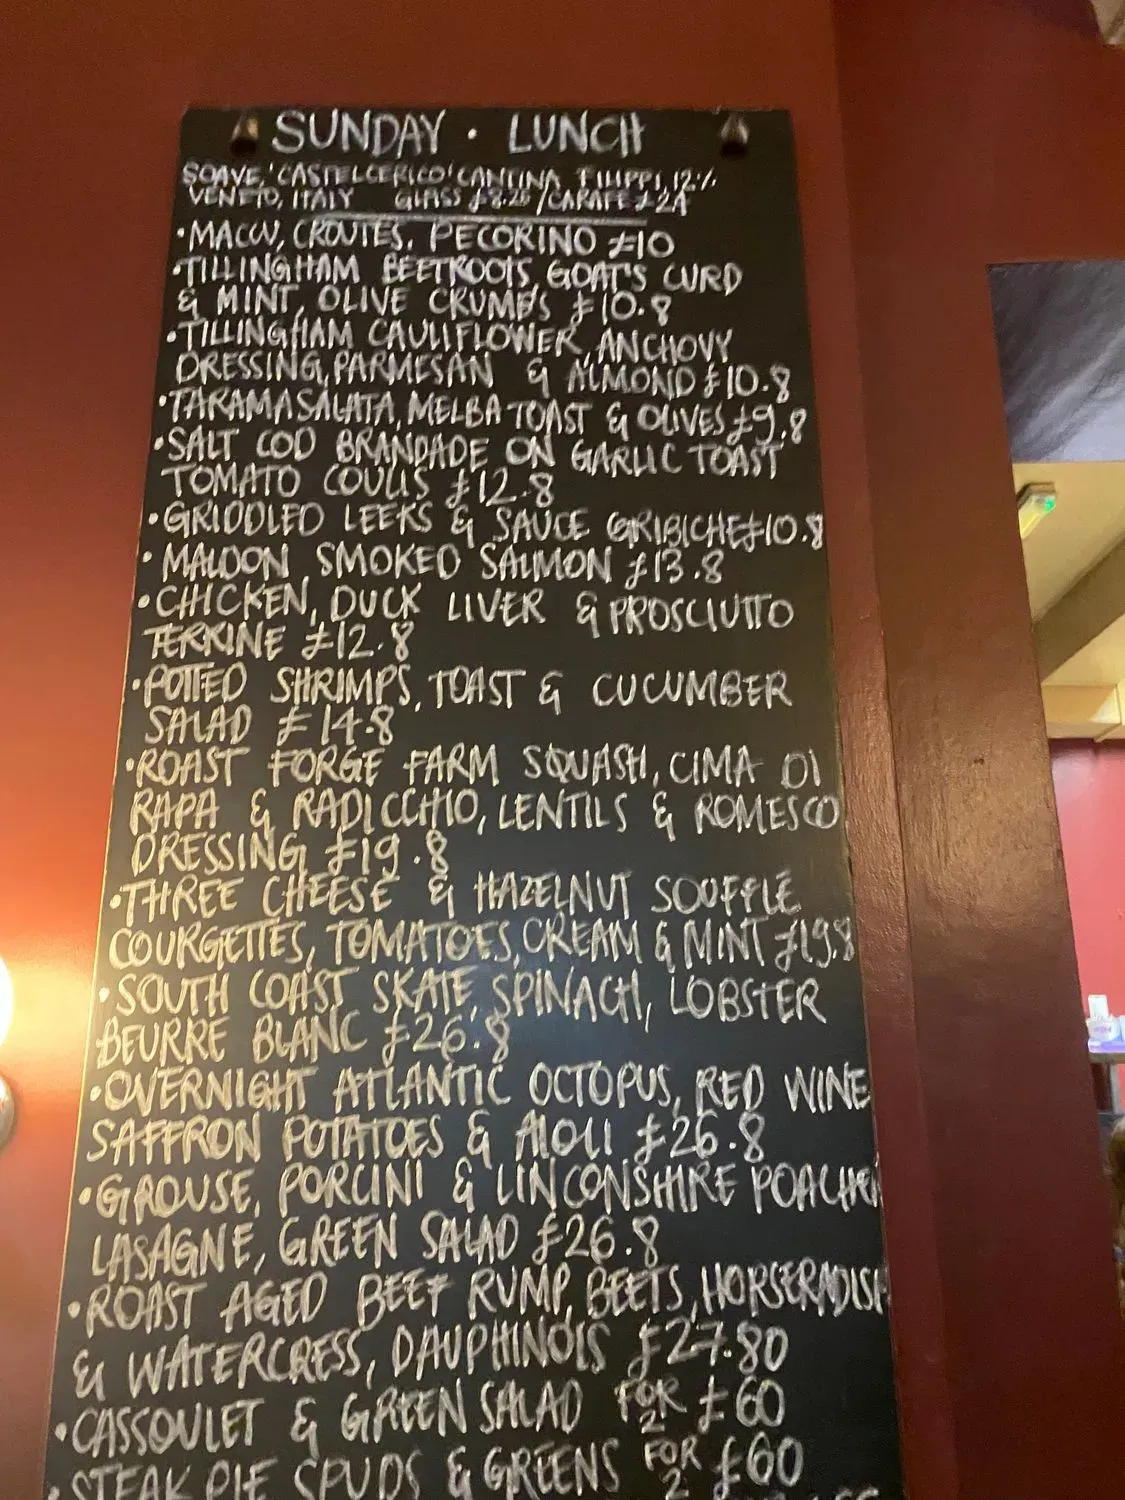 SUNDAY · LUNCH
SOAVE, 'CASTELCERICO' CANTINA FILIPPI, 12%
VENETO, ITALY GLASS £8.25 / CARAFE £24
• MACCU, CROUTES, PECORINO £10
• TILLINGHAM BEETROOTS, GOAT'S CURD
& MINT, OLIVE CRUMBS £10.8
• TILLINGHAM CAULIFLOWER, ANCHOVY
DRESSING, PARMESAN & ALMOND £10.8
• TARAMASALATA, MELBA TOAST & OLIVES £9.8
• SALT COD BRANDADE ON GARLIC TOAST
TOMATO COULIS £12.8
• GRIDDLED LEEKS & SAUCE GRIBICHE £10.8
• MALDON SMOKED SALMON £13.8
• CHICKEN, DUCK LIVER & PROSCIUTTO
TERRINE £12.8
• POTTED SHRIMPS, TOAST & CUCUMBER
SALAD £14.8
• ROAST FORGE FARM SQUASH, CIMA DI
RAPA & RADICCHIO, LENTILS & ROMESCO
DRESSING £19.8
• THREE CHEESE & HAZELNUT SOUFFLÉ
COURGETTES, TOMATOES, CREAM & MINT £19.8
• SOUTH COAST SKATE, SPINACH, LOBSTER
BEURRE BLANC £26.8
• OVERNIGHT ATLANTIC OCTOPUS, RED WINE
SAFFRON POTATOES & AIOLI £26.8
• GROUSE, PORCINI & LINCONSHIRE POACHER
LASAGNE, GREEN SALAD £26.8
• ROAST AGED BEEF RUMP, BEETS, HORSERADISH
& WATERCRESS, DAUPHINOIS £27.80
• CASSOULET & GREEN SALAD FOR 2 £60
• STEAK PIE SPUDS & GREENS FOR 2 £60